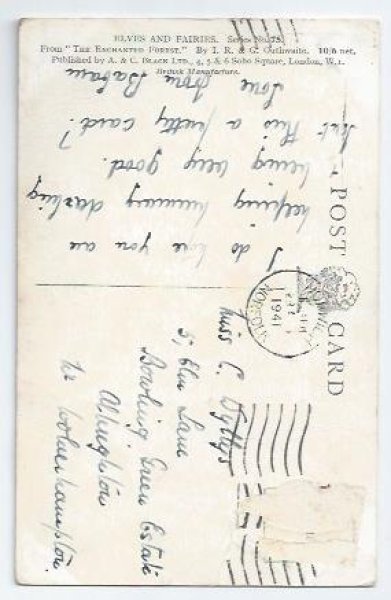 ELVES AND FAIRIES. Series No. 75.
From "THE ENCHANTED FOREST." By I. R. & G. Outhwaite. 10/6 net.
Published by A. & C. BLACK LTD., 4, 5 & 6 Soho Square, London, W.1.
British Manufacture.
POST CARD
I do hope you are
helping mummy darling
being very good.
Isn't this a pretty card?
Love from Barbara
1941
Miss C.
5, Elm Lane
Bowling Green Estate
Nr Wolverhampton.